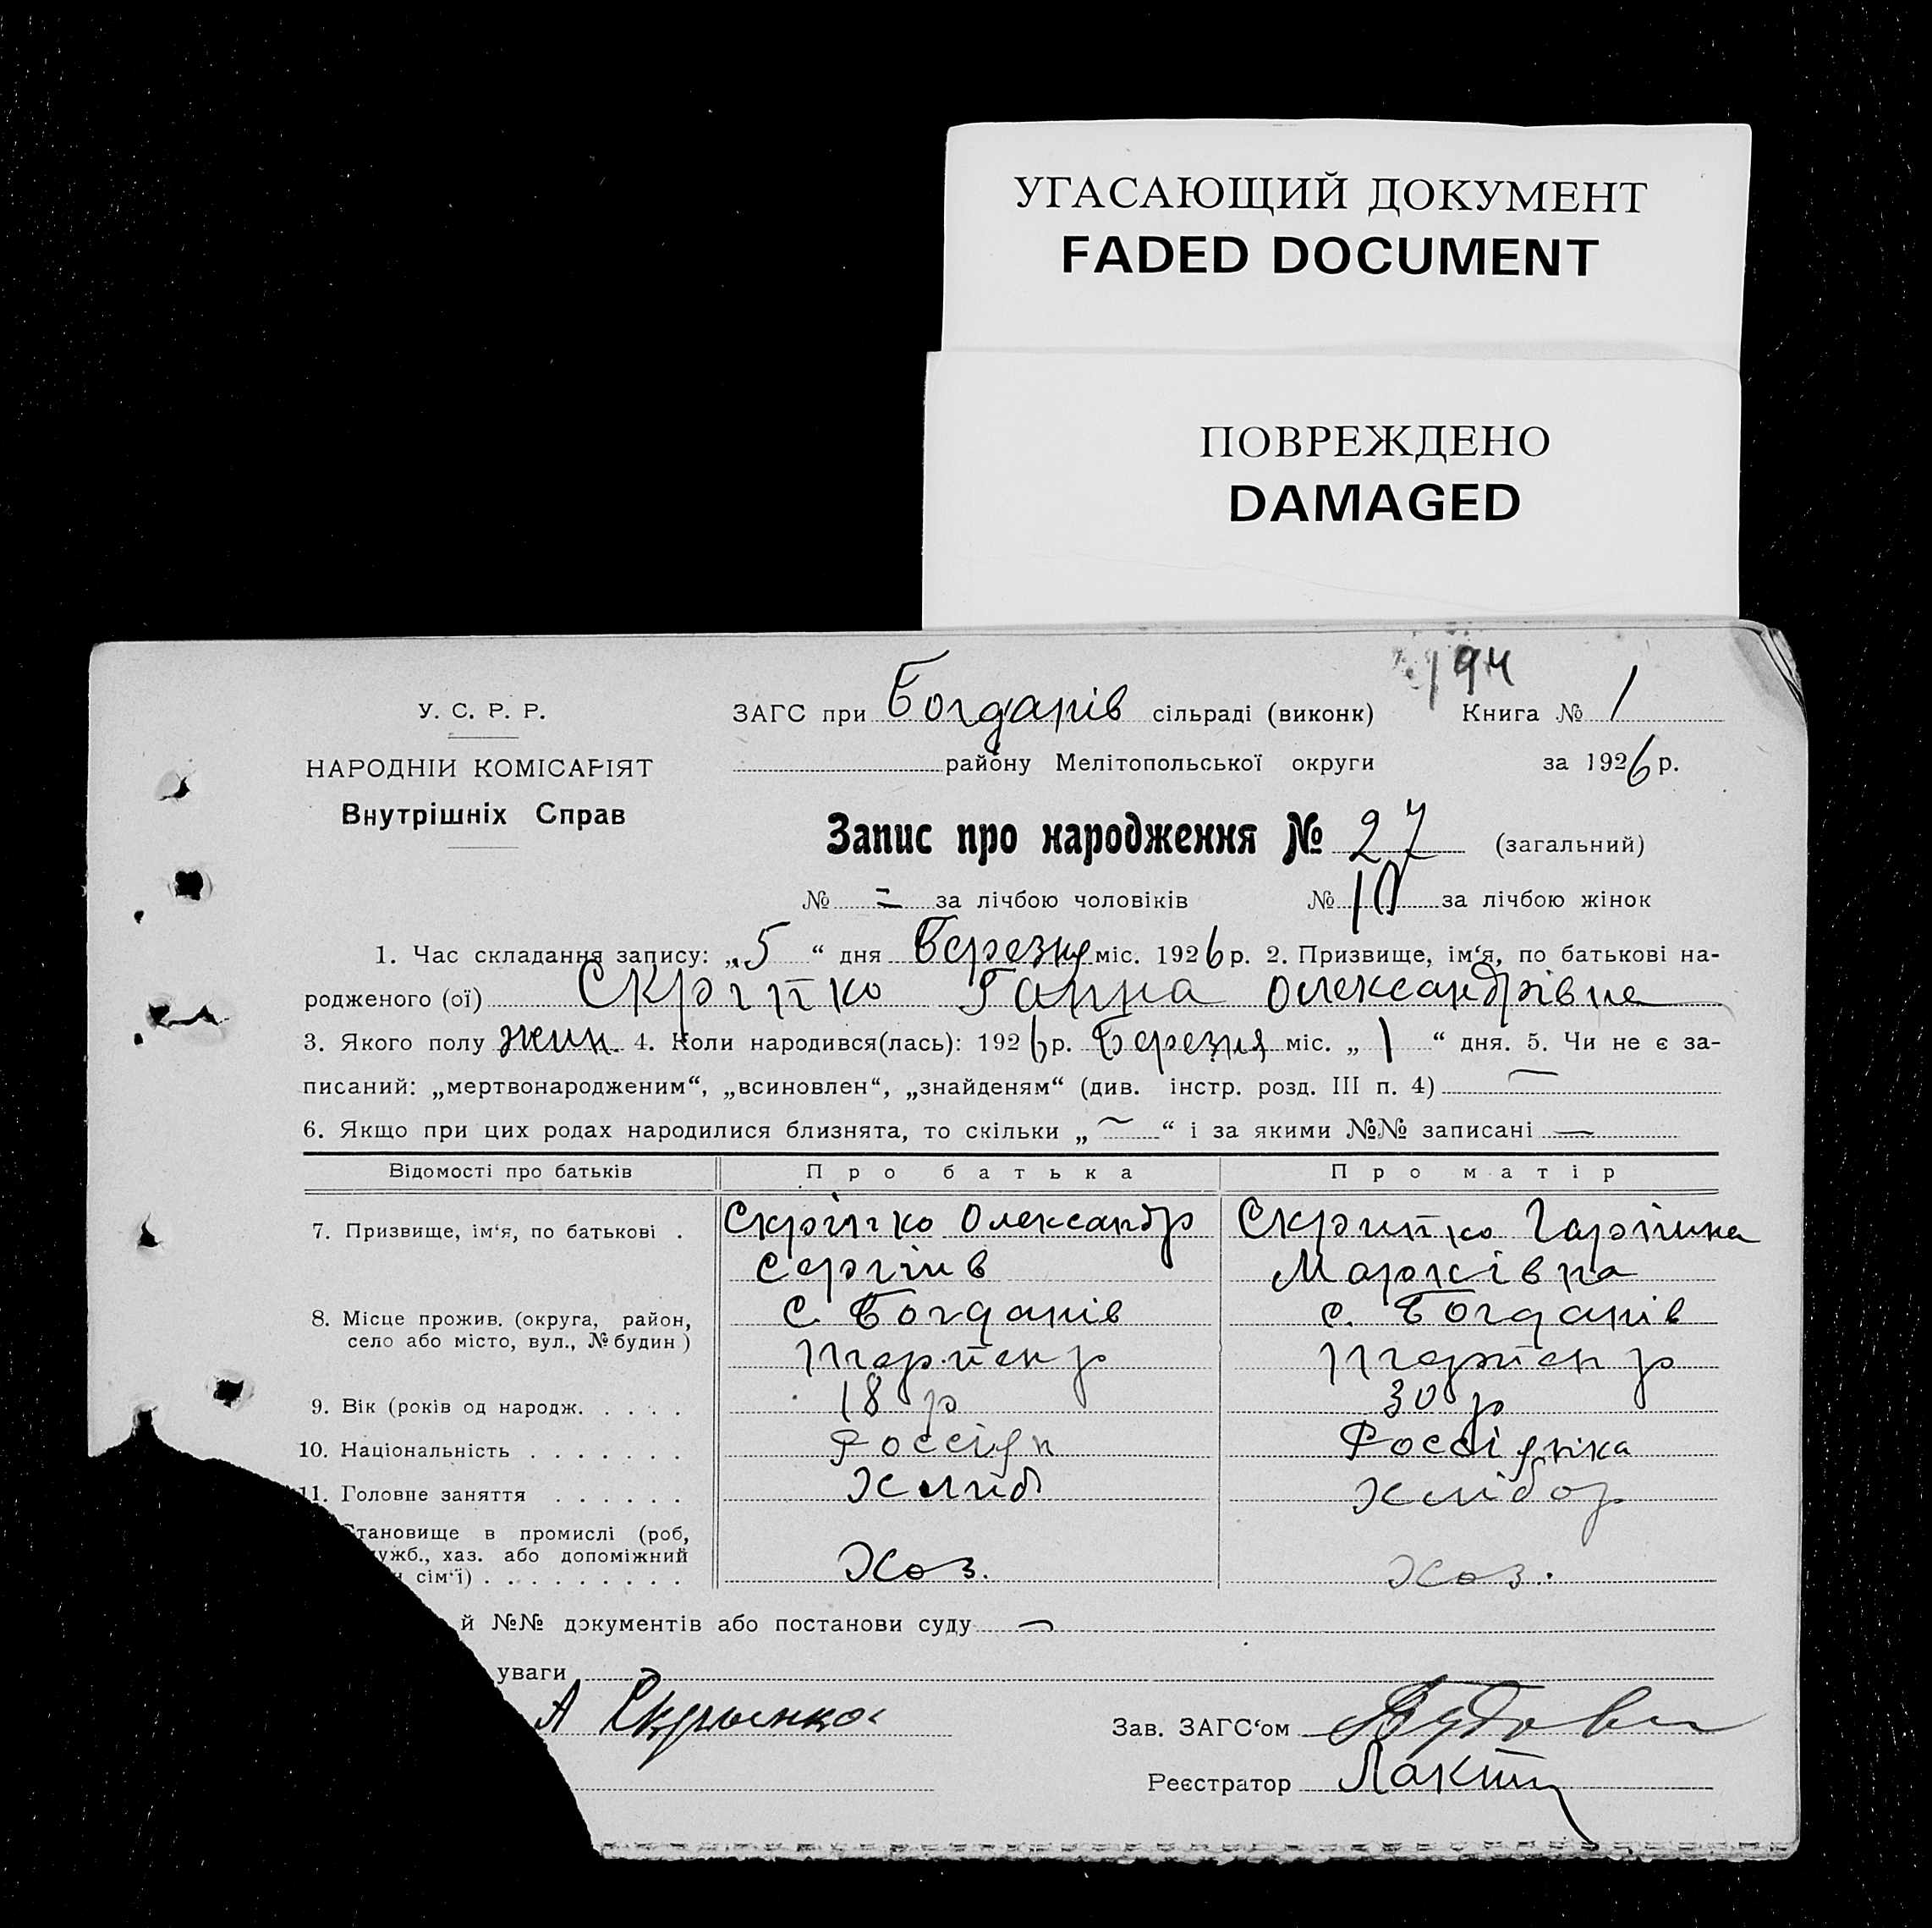 УГАСАЮЩИЙ ДОКУМЕНТ
FADED DOCUMENT
ПОВРЕЖДЕНО
DAMAGED
194
У. С. Р. Р.
НАРОДНІЙ КОМІСАРІЯТ
Внутрішніх Справ
ЗАГС при Богданів сільраді (виконк) Книга № 1
району Мелітопольської округи за 1926 р.
Запис про народження № 27 (загальний)
№ = за лічбою чоловіків № 10 за лічбою жінок
1. Час складання запису: „5“ дня Березня міс. 1926 р. 2. Призвище, ім‘я, по батькові на-
родженого (ої) Скрипко Ганна Олександрівна
3. Якого полу жин. 4. Коли народився(лась): 1926 р. Березня міс. „1“ дня. 5. Чи не є за-
писаний: „мертвонародженим“, „всиновлен“, „знайденям“ (див. інстр. розд. III п. 4) —
6. Якщо при цих родах народилися близнята, то скільки „—“ і за якими №№ записані —
Відомості про батьків Про батька Про матір
7. Призвище, ім‘я, по батькові . Скріпко Олександр Скрипко Гарпина
Сергіів Марківна
8. Місце прожив. (округа, район, с. Богданів с. Богданів
село або місто, вул., № будин)
9. Вік (років од народж. . . . . 18 р 30 р
10. Національність . . . . . . . Россіян Россіянка
11. Головне заняття . . . . . . Хліб Хлібор
Становище в промислі (роб,
ужб., хаз. або допоміжний Хоз. Хоз.
н сім‘ї) . . . . . . . . .
й №№ документів або постанови суду —
уваги
А Скрыпко Зав. ЗАГС‘ом
Реєстратор